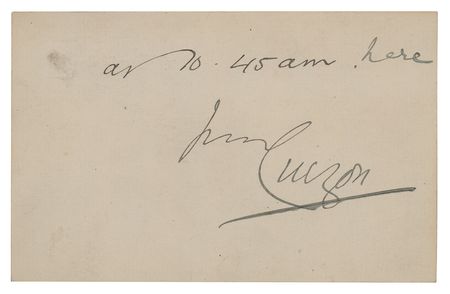 at 10.45 am here
Yrs
Curzon